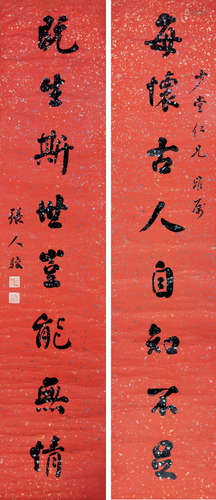 每懷古人自知不足
少堂仁兄雅屬
既生斯世豈能無情
張人駿